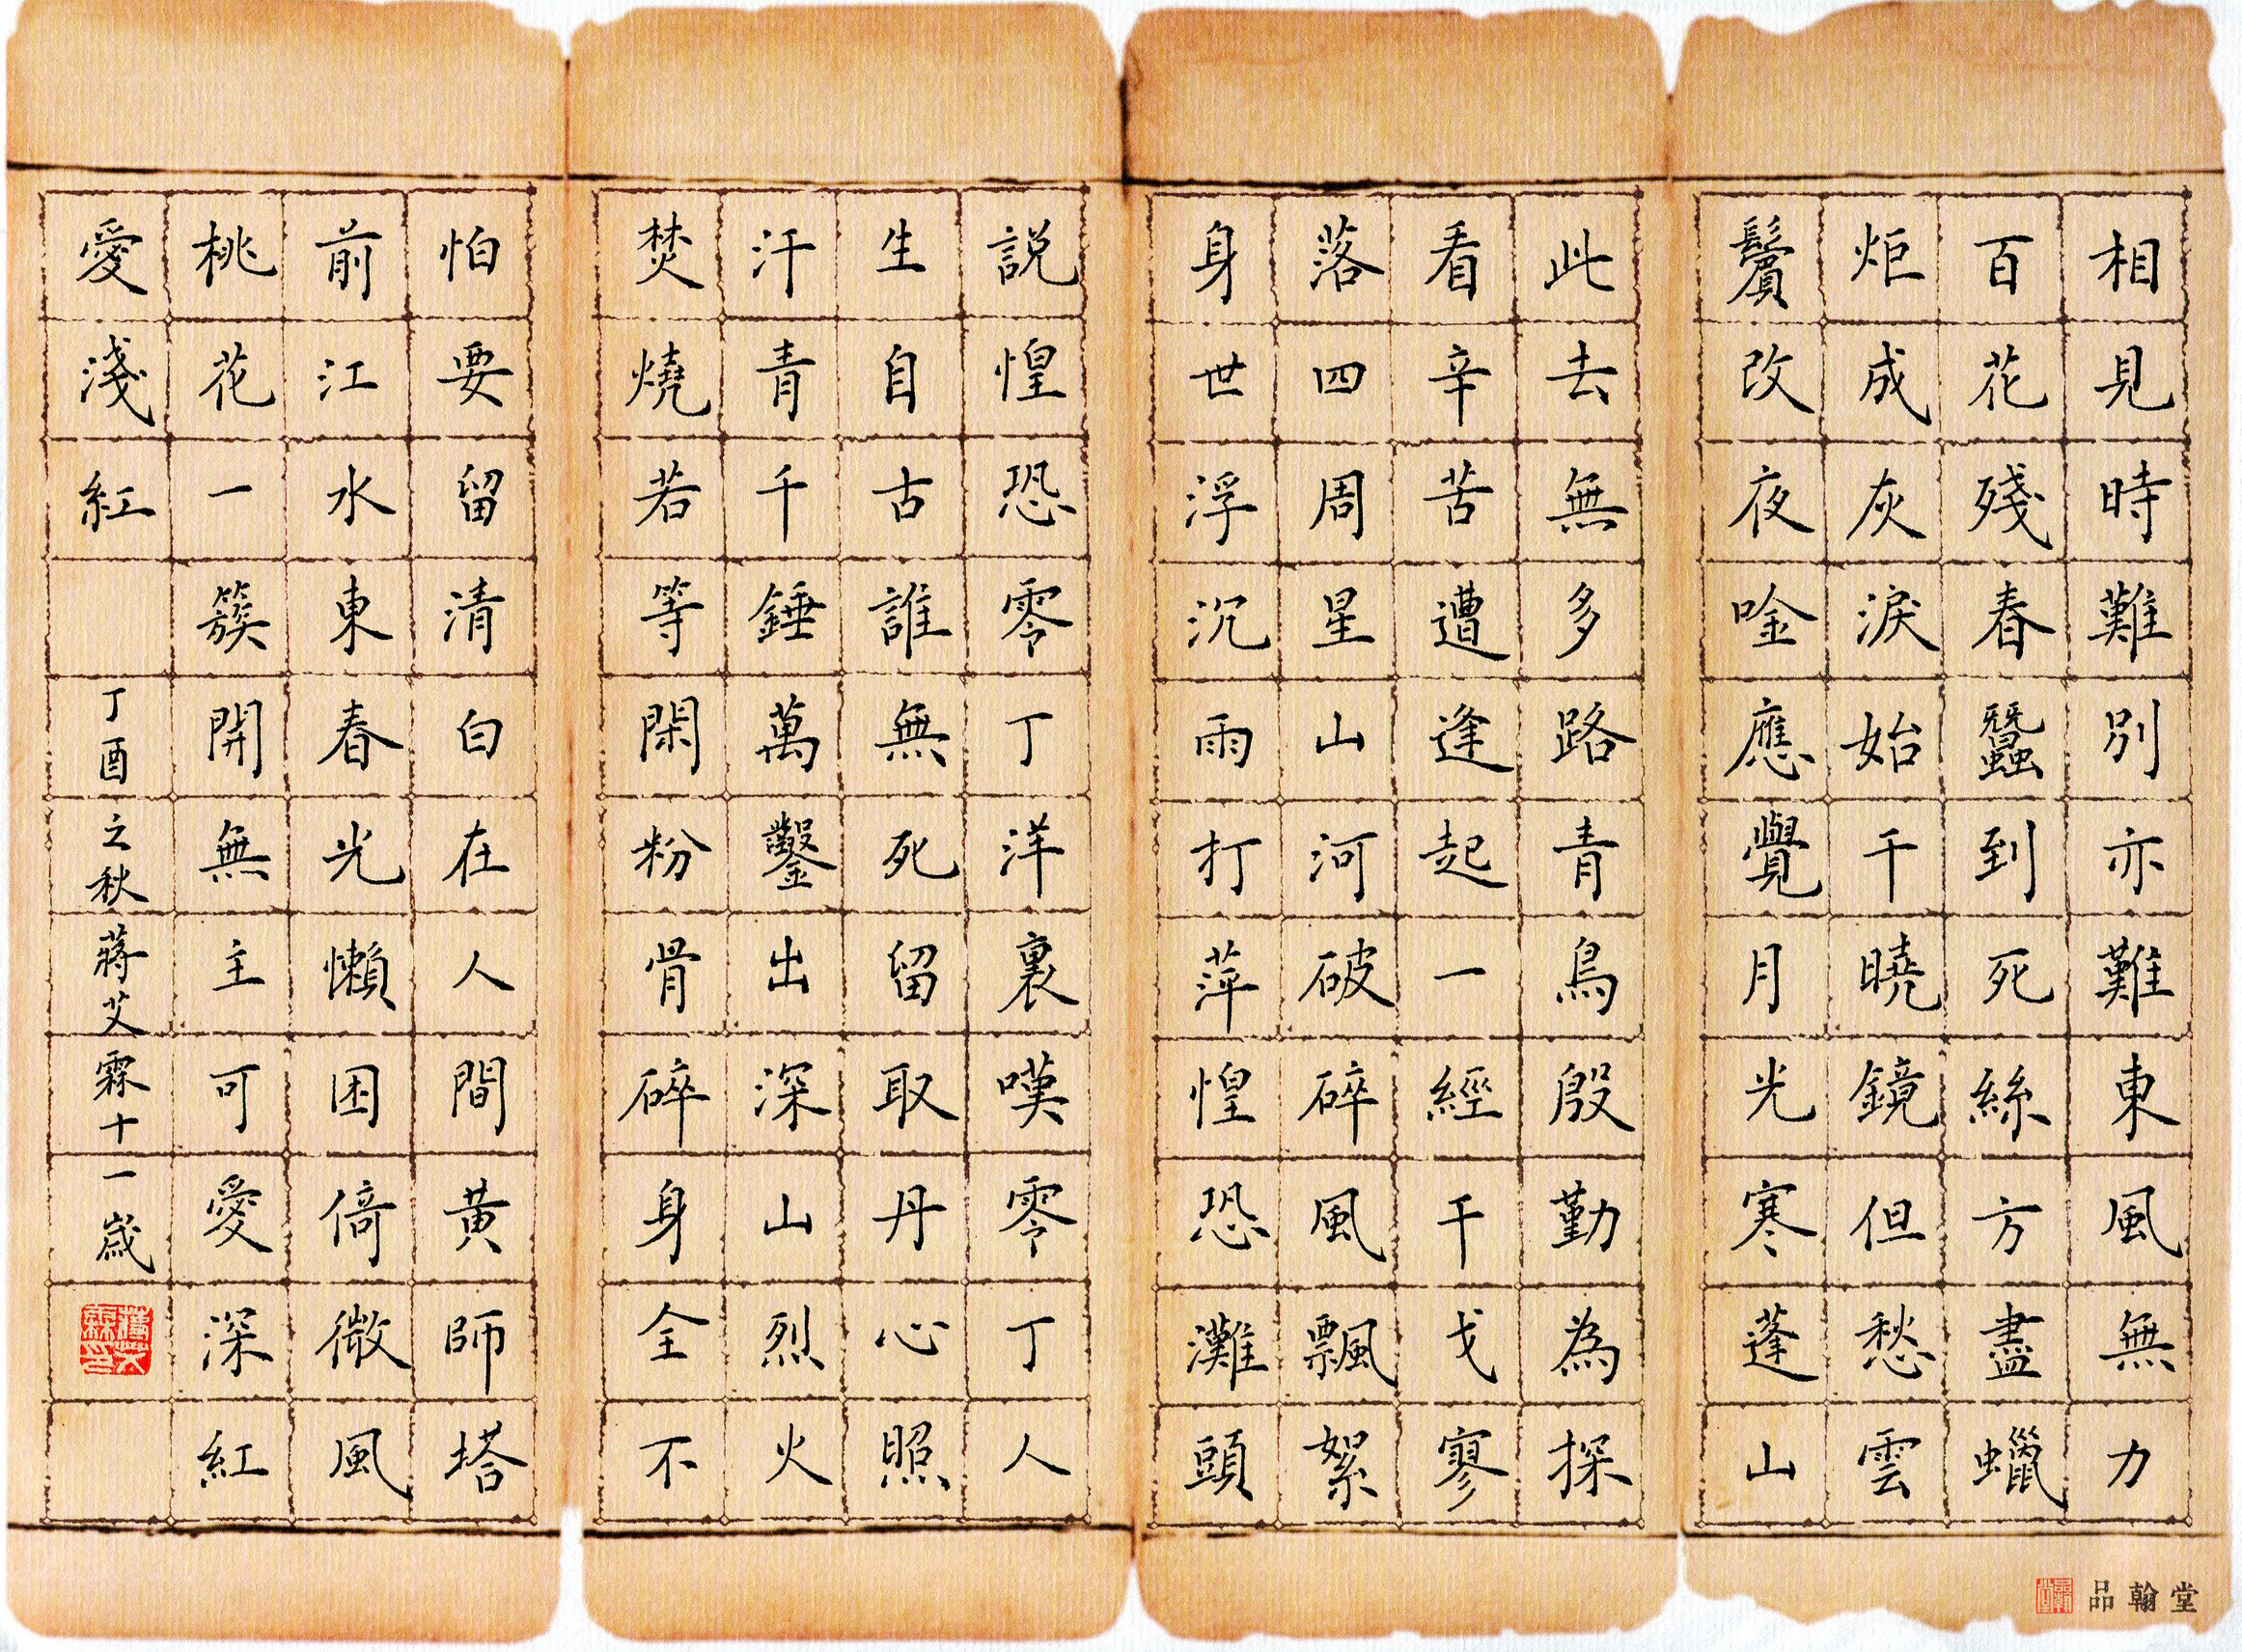 相見時難別亦難東風無力
百花殘春蠶到死絲方盡蠟
炬成灰淚始干曉鏡但愁雲
鬢改夜唫應覺月光寒蓬山
此去無多路青鳥殷勤為探
看辛苦遭逢起一經干戈寥
落四周星山河破碎風飄絮
身世浮沉雨打萍惶恐灘頭
説惶恐零丁洋裏嘆零丁人
生自古誰無死留取丹心照
汗青千錘萬鑿出深山烈火
焚燒若等閑粉骨碎身全不
怕要留清白在人間黄師塔
前江水東春光懶困倚微風
桃花一簇開無主可愛深紅
愛淺紅
丁酉之秋蔣艾霖十一歲
蔣艾霖印
品翰堂